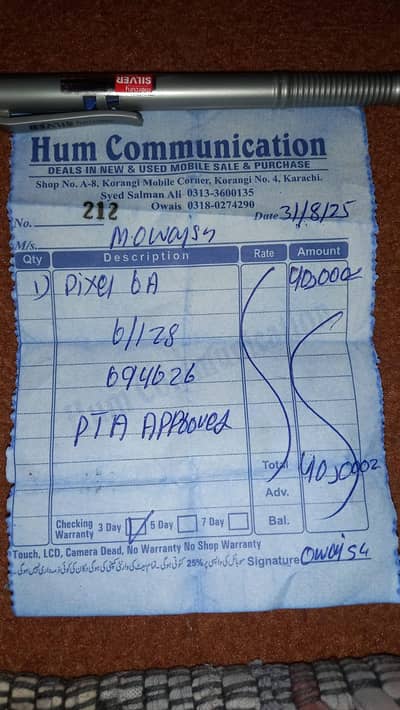 SILVER
Hum Communication
DEALS IN NEW & USED MOBILE SALE & PURCHASE
Shop No. A-8, Korangi Mobile Corner, Korangi No. 4, Karachi.
Syed Salman Ali 0313-3600135
Owais 0318-0274290
No. 212 Date 31/8/25
M/s. M Owais
Qty Description Rate Amount
1) Pixel 6A 40,000
6/128
694626
PTA Approved
Total 40,000
Adv.
Checking Warranty 3 Day 5 Day 7 Day Bal.
Touch, LCD, Camera Dead, No Warranty No Shop Warranty
25% Signature Owais